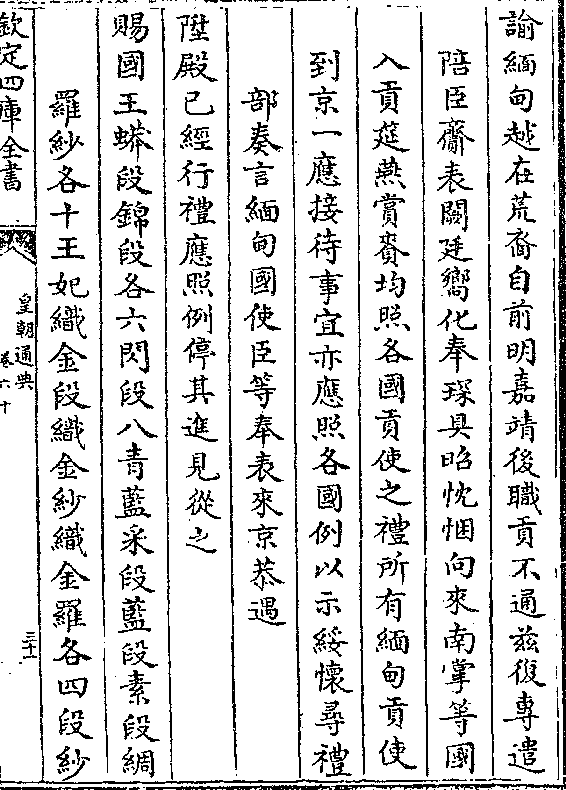 諭緬甸越在荒裔自前明嘉靖後職貢不通兹復專遣
陪臣齎表闕廷嚮化奉琛具昭忱悃向來南掌等國
入貢筵燕賞賚均照各國貢使之禮所有緬甸貢使
到京一應接待事宜亦應照各國例以示綏懷尋禮
部奏言緬甸國使臣等奉表來京恭遇
陞殿已經行禮應照例停其進見從之
賜國王蟒段錦段各六閃段八青藍采段藍段素段綢
羅紗各十王妃織金段織金紗織金羅各四段紗
欽定四庫全書
皇朝通典
卷六十
三十一